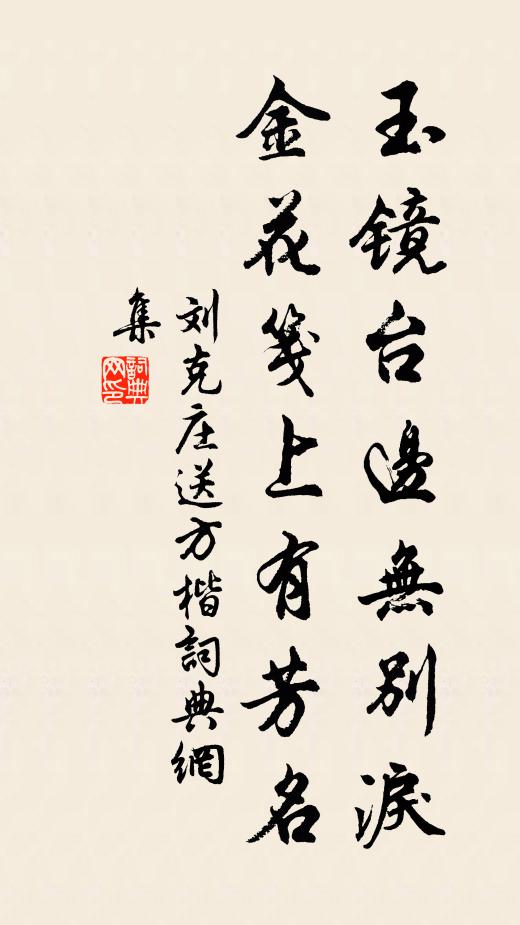 玉镜台邊無別淚
金花箋上有芳名
刘克庄送方楷詞典網
集
詞典网印